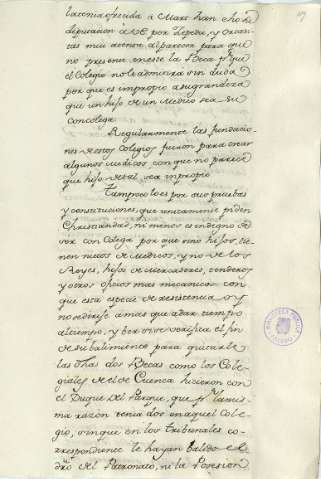 la tenia ofrecida a Marz han echo de
diputacion a VE por Zepeda, y Oraci
tas mui atentos al parecer para que
no presente en este la Beca pr que
el Colegio no le admitira sin duda
por que es impropio a su grandeza
que un hijo de un Medico sea su
concolega
Regularmente las fundacio
nes de estos Colegios fueron para crear
algunos Medicos con que no parece
que hijo de tal sea impropio
Tampoco lo es por sus pruebas
y constituciones, que unicamente piden
Christiandad, ni menos es indigno de
ser con Colega por que mis hijos tie
nen nietos de Medicos, y no de los
Reyes, hijos de Mercaderes, tenderos
y otros oficios mas mecanicos con
que esta especie de resistencia
no se dirije a mas que a dar tiempo
al tiempo, y ver si se verifica el fin
de su batimiento para quitarle
las dhas dos Becas como los Cole
giales de el de Cuenca hicieron con
el Duque del Parque, que pr la mis
ma razon tenia dos en aquel Cole
gio, sin que en los tribunales co
rrespondiente le hayan balido el
dro del Patronato, ni la Posesion